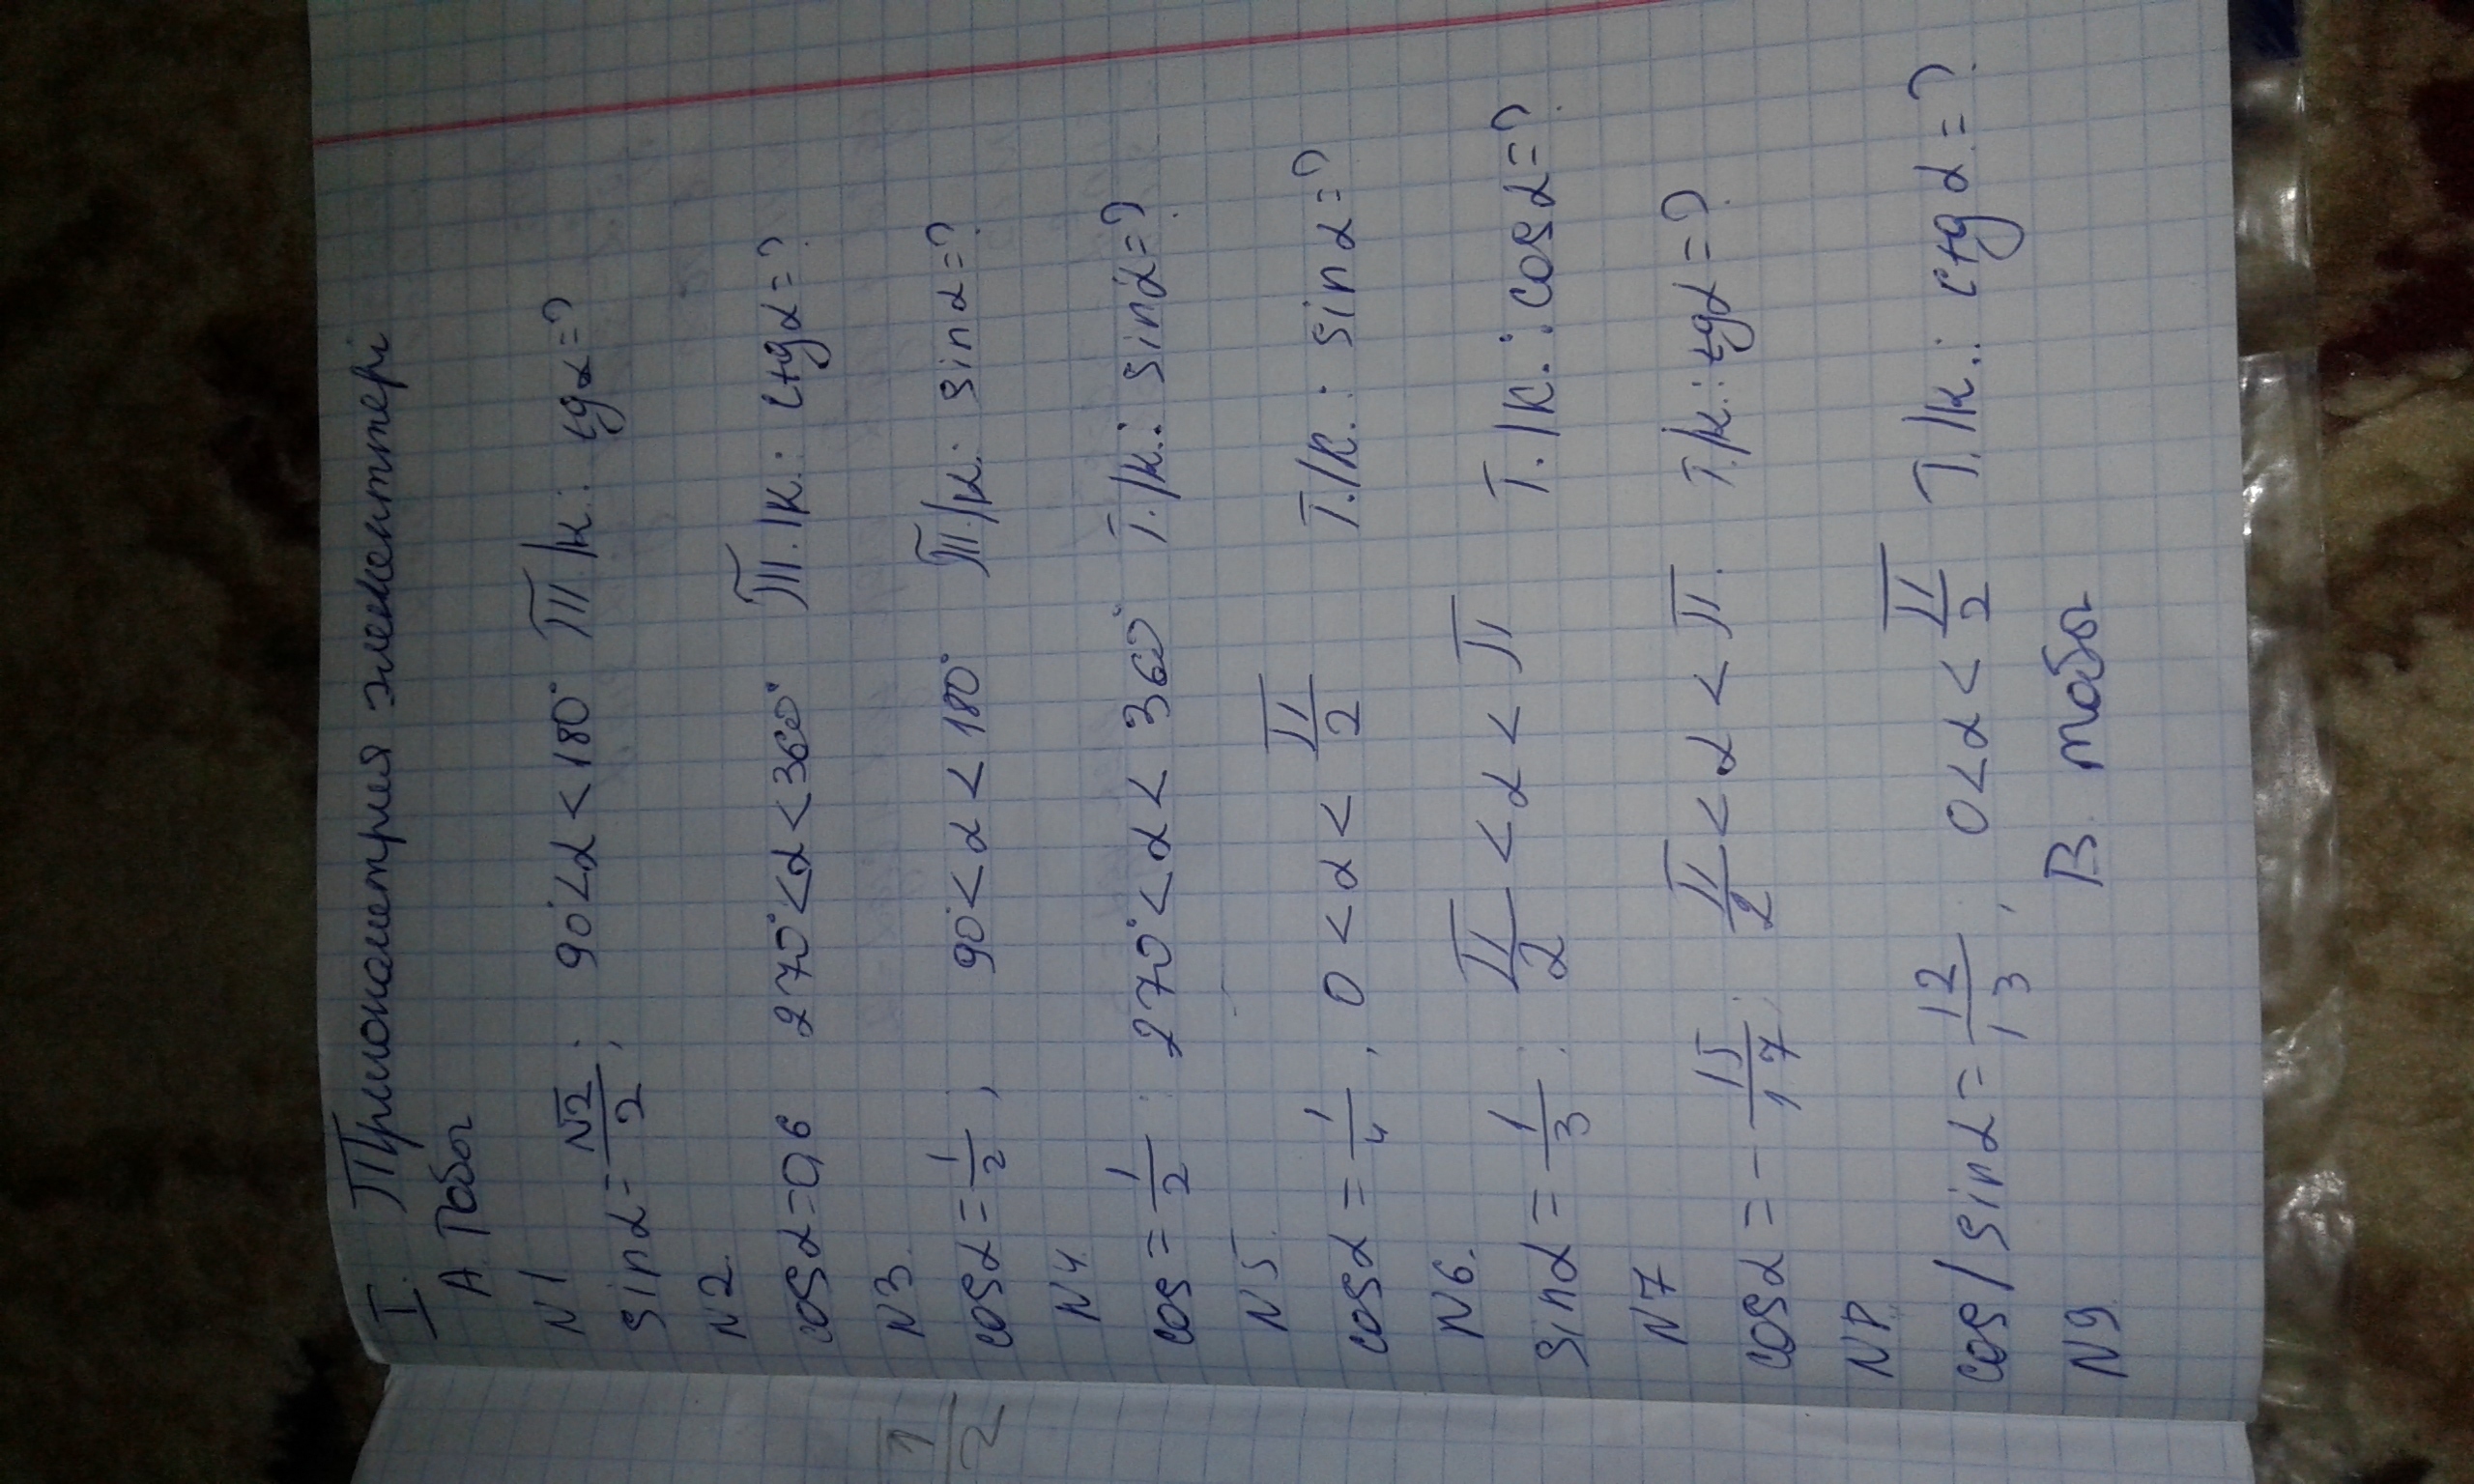 I. Тригонометрия элементтері
А тобы
N1
sinα=√2/2; 90°<α<180° Т/к: tgα=?
N2.
cosα=0,6 270°<α<360° Т./к.: ctgα=?
N3.
cosα=1/2, 90°<α<180° Т/к: sinα=?
N4.
cos=1/2; 270°<α<360° Т./к.: sinα=?
N5.
cosα=1/4, 0<α<π/2 Т./к.: sinα=?
N6.
sinα=1/3; π/2<α<π Т./к.: cosα=?
N7
cosα=-15/17; π/2<α<π. Т/к.: tgα=?
N8.
cos/sinα=12/13, 0<α<π/2 Т./к.: ctgα=?
N9 В. тобы
1/2